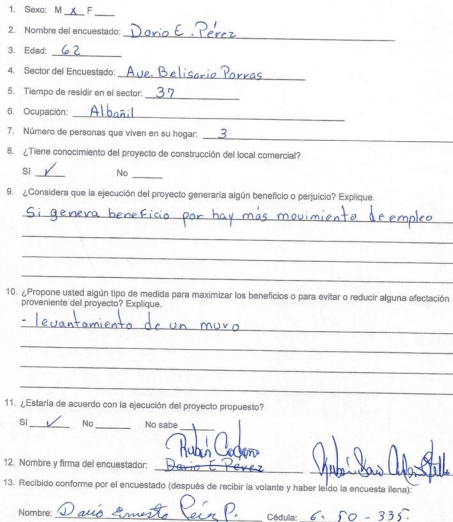 1. Sexo: M X F
2. Nombre del encuestado: Dario E. Pérez
3. Edad: 62
4. Sector del Encuestado: Ave. Belisario Porras
5. Tiempo de residir en el sector: 37
6. Ocupación: Albañil
7. Número de personas que viven en su hogar: 3
8. ¿Tiene conocimiento del proyecto de construcción del local comercial?
Sí ✓ No
9. ¿Considera que la ejecución del proyecto generaría algún beneficio o perjuicio? Explique.
Si geneva beneficio por hay más movimiento de empleo
10. ¿Propone usted algún tipo de medida para maximizar los beneficios o para evitar o reducir alguna afectación
proveniente del proyecto? Explique.
- levantamiento de un muro
11. ¿Estaría de acuerdo con la ejecución del proyecto propuesto?
Sí ✓ No No sabe
Rubén
12. Nombre y firma del encuestador: Dario E Pérez
13. Recibido conforme por el encuestado (después de recibir la volante y haber leído la encuesta llena):
Nombre: Dario Ernesto P. Cédula: 6-50-335